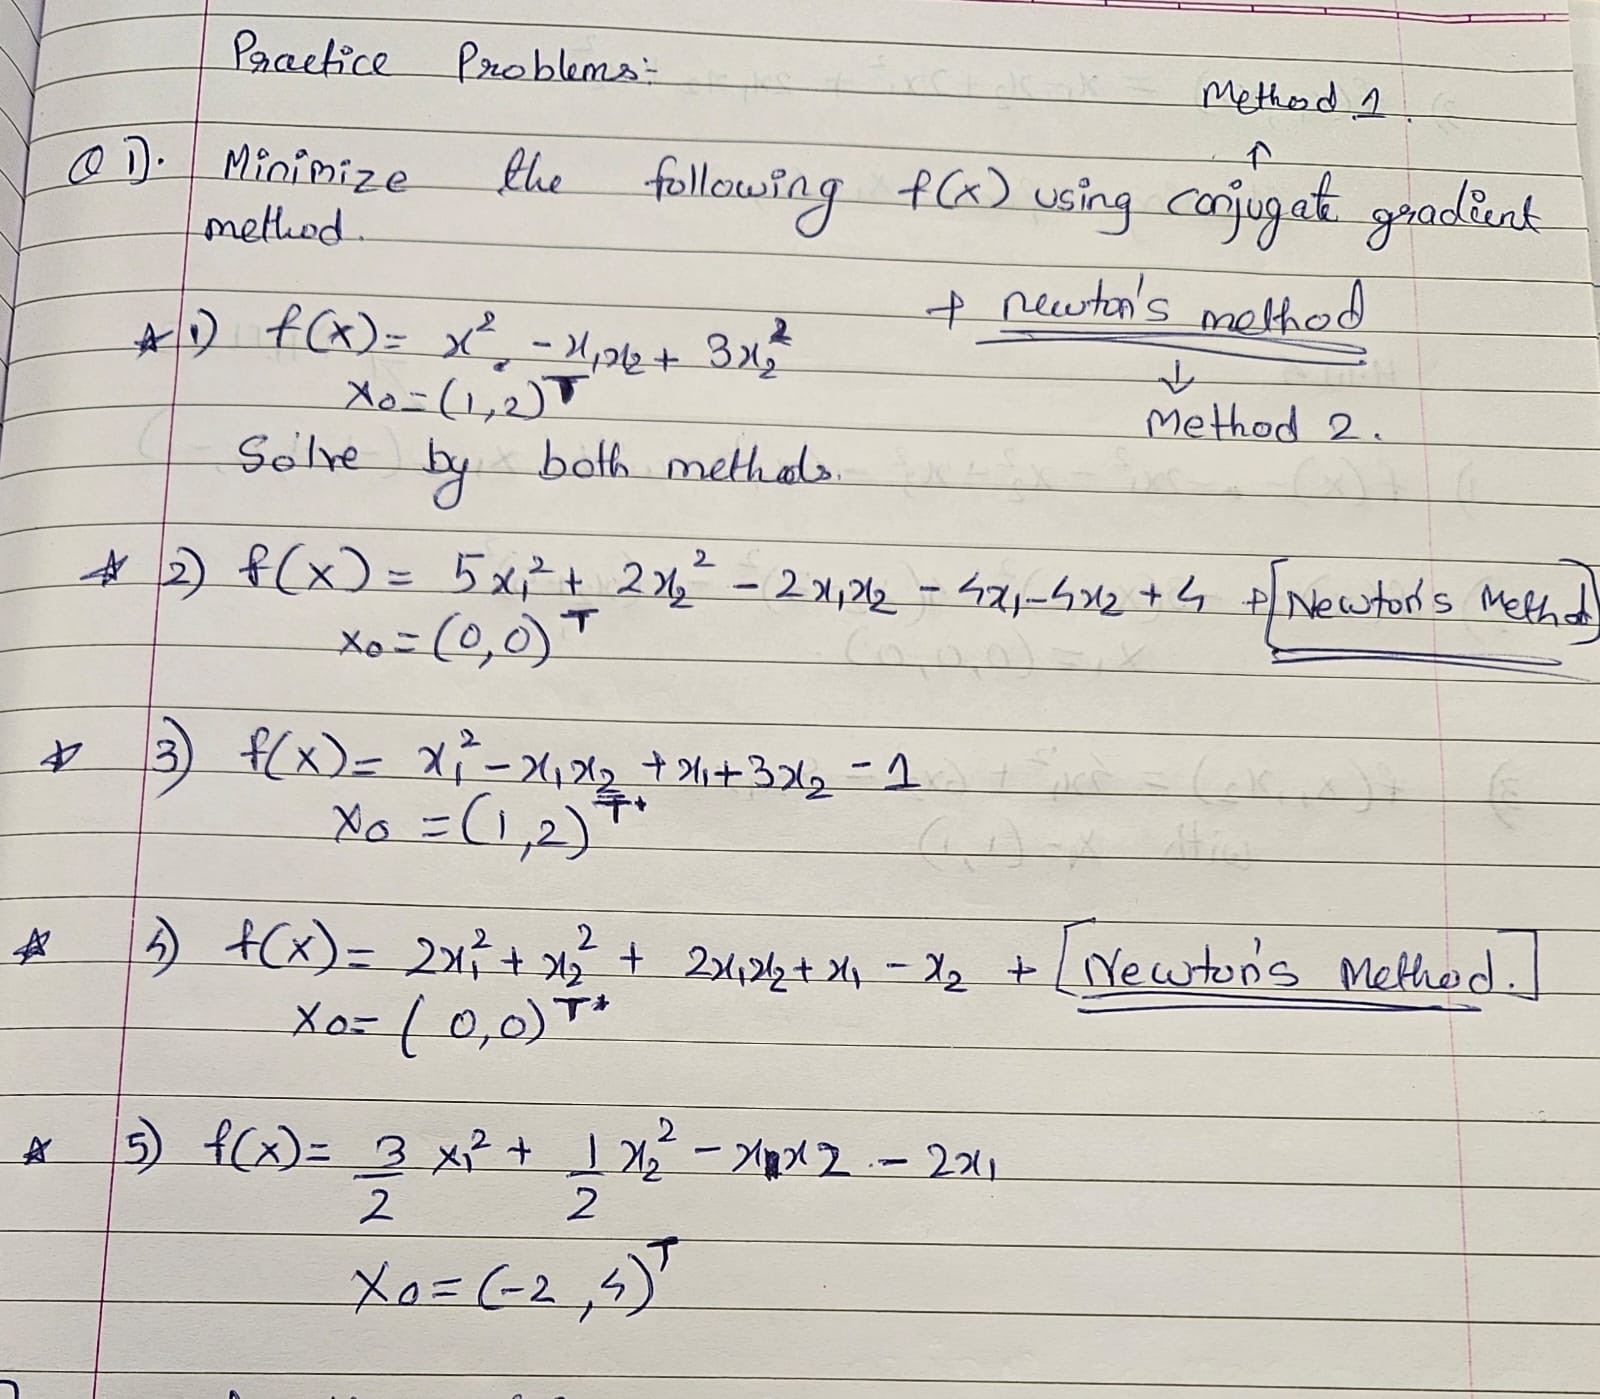 Practice Problems:-
Method 1.
↑
Q 1). Minimize the following f(x) using conjugate gradient
method.
+ newton's method
↓
Method 2.
☆ 1) f(x) = x². - x₁x₂ + 3x₂²
x₀ = (1,2)ᵀ
Solve by both methods.
☆ 2) f(x) = 5x₁² + 2x₂² - 2x₁x₂ - 4x₁ - 4x₂ + 4 + [Newton's Method]
x₀ = (0,0)ᵀ
☆ 3) f(x) = x₁² - x₁x₂ + x₁ + 3x₂ - 1
x₀ = (1,2)ᵀ⁺
☆ 4) f(x) = 2x₁² + x₂² + 2x₁x₂ + x₁ - x₂ + [Newton's Method.]
x₀ = (0,0)ᵀ*
☆ 5) f(x) = 3/2 x₁² + 1/2 x₂² - x₁x2 - 2x₁
x₀ = (-2,4)ᵀ